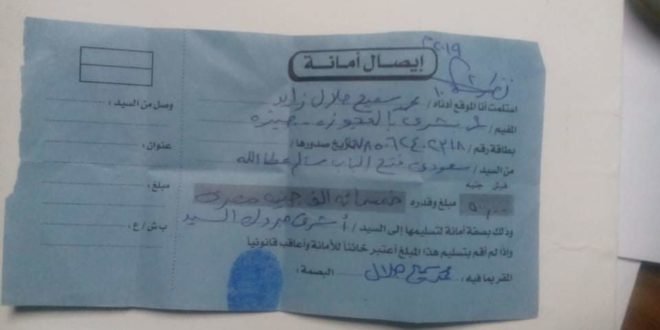 ٢٠١٩
إيصال أمانة
استلمت أنا الموقع أدناه / محمد سميح جلال
المقيم /
بطاقة رقم / تاريخ صدورها /
من السيد / سعودي فتح الباب سالم عطا الله
قرش جنيه
مبلغ وقدره خمسمائة الف جنيه مصرى
وذلك بصفة أمانة لتسليمها إلى السيد / أشرف مبروك السيد
وإذا لم أقم بتسليم هذا المبلغ أعتبر خائناً للأمانة وأعاقب قانونياً
المقر بما فيه، محمد سميح جلال البصمة:
وصل من السيد:
عنوان:
مبلغ:
ب ش / ع: